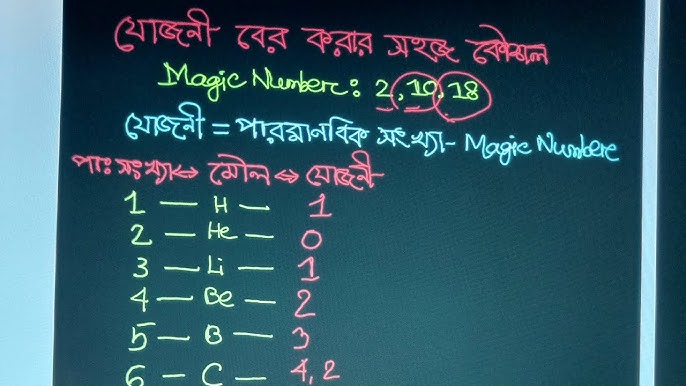 যোজনী বের করার সহজ কৌশল
Magic Number: 2, 10, 18
যোজনী = পারমানবিক সংখ্যা - Magic Number
পাঃ সংখ্যা ↔ মৌল ↔ যোজনী
1 — H — 1
2 — He — 0
3 — Li — 1
4 — Be — 2
5 — B — 3
6 — C — 4, 2